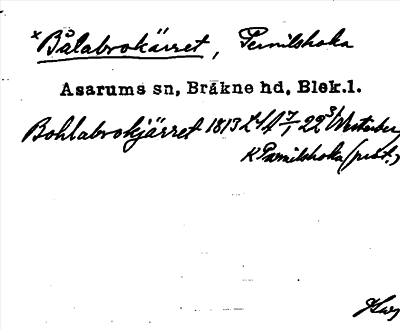 x Bålabrokärret, Pernilskoka
Asarums sn, Bräkne hd, Blek.l.
Bohlabrokjärret 1813 LSA 7/1-22 3/ Westerberg
K Pernilskoka (prot.)